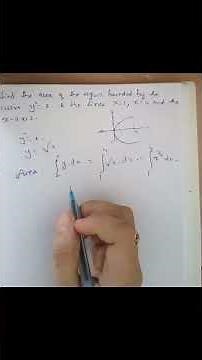 Find the area of the region bounded by the
curve y² = x & the lines x=1, x=4 and the
y² = x
y = √x
Area = ∫ y dx = ∫ √x dx = ∫ x dx